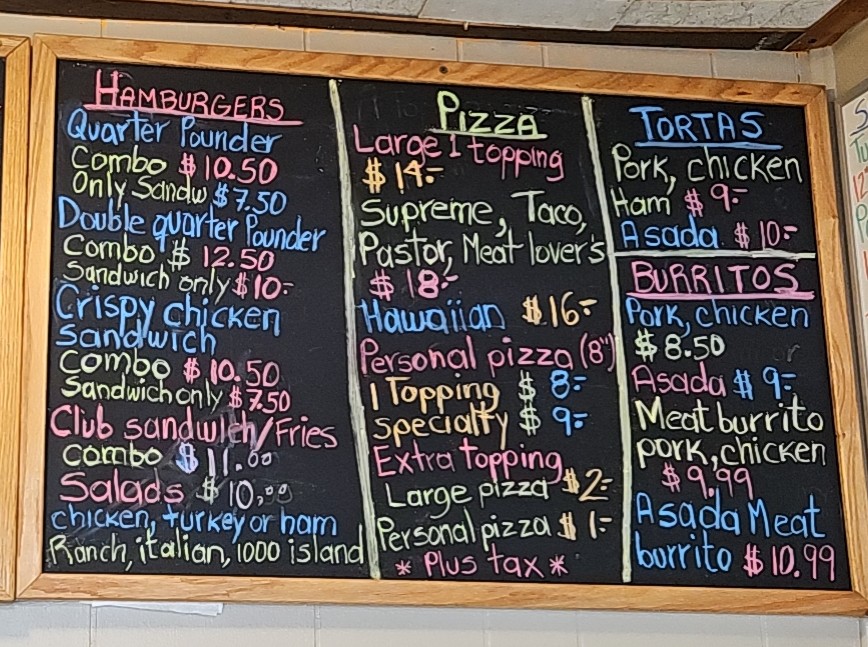 HAMBURGERS
Quarter Pounder
Combo $10.50
Only Sandw $7.50
Double quarter Pounder
Combo $ 12.50
Sandwich only $10.-
Crispy chicken
Sandwich
Combo $10.50
Sandwich only $7.50
Club sandwich/Fries
Combo $11.00
Salads $10.00
chicken, turkey or ham
Ranch, italian, 1000 island
PIZZA
Large 1 topping
$14.-
Supreme, Taco,
Pastor, Meat lover's
$18.-
Hawaiian $16.-
Personal pizza (8")
1 Topping $ 8.-
specialty $ 9.-
Extra topping
Large pizza $2.-
Personal pizza $1.-
* Plus tax *
TORTAS
Pork, chicken
Ham $9.-
Asada $10.-
BURRITOS
Pork, chicken
$8.50
Asada $9.-
Meat burrito
pork, chicken
$9.99
Asada Meat
burrito $10.99